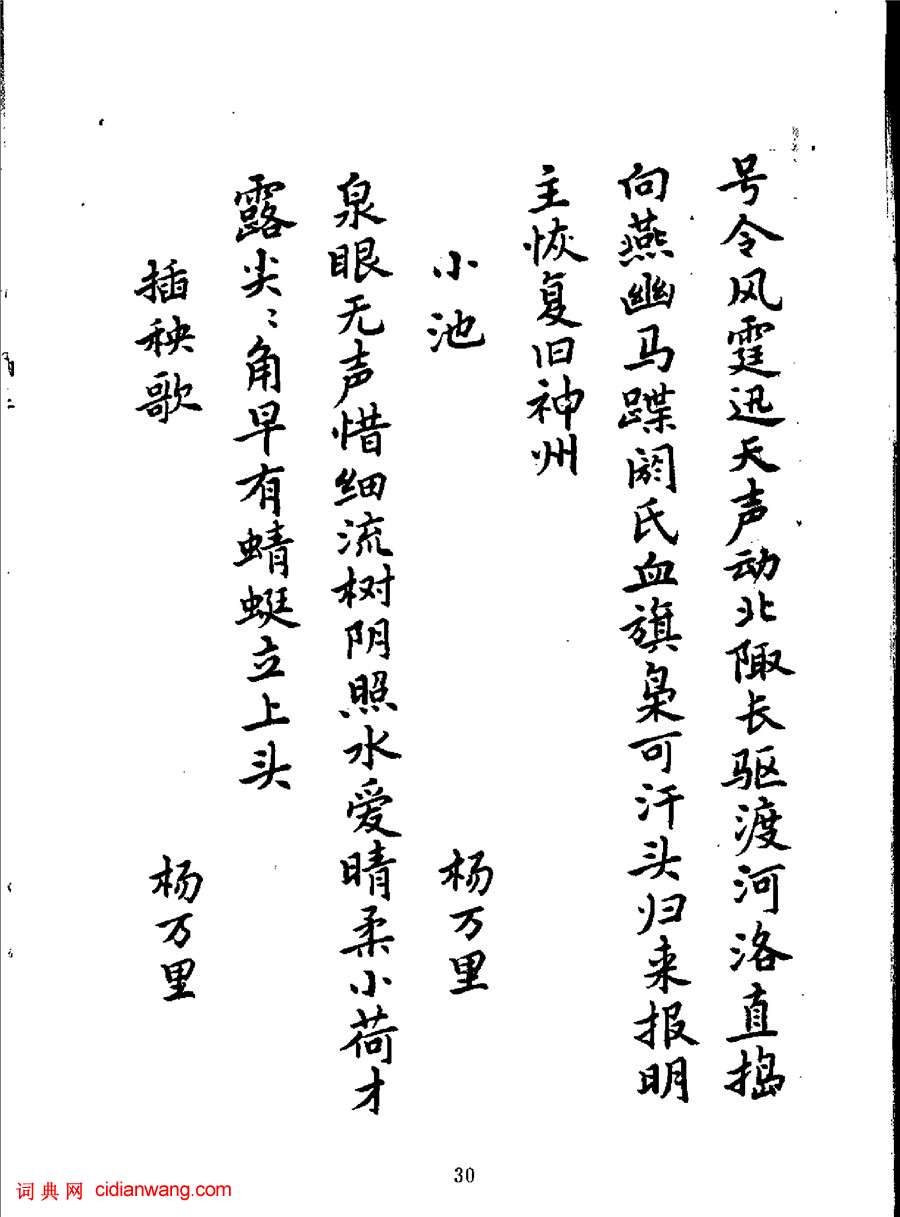 号令风霆迅天声动北陬长驱渡河洛直捣
向燕幽马蹀阏氏血旗枭可汗头归来报明
主恢复旧神州
小池 杨万里
泉眼无声惜细流树阴照水爱晴柔小荷才
露尖:角早有蜻蜓立上头
插秧歌 杨万里
30
词典网 cidianwang.com